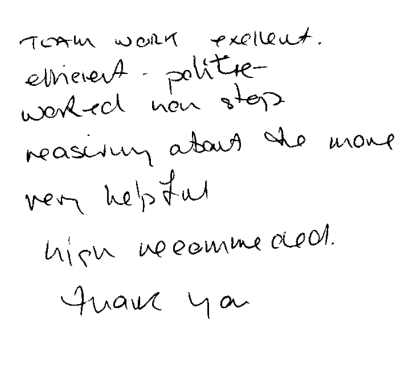 TEAM WORK exellent.
efficient - polite -
worked non stop
reasuring about the move
very helpful
high recommended.
thank you